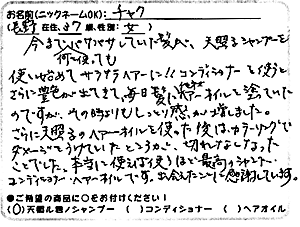 お名前(ニックネームOK): チャク
(長野 在住, 37 歳, 性別: 女)
今までパサパサしていた髪が、天照るシャンプーを
何に使っても
使い始めてサラサラヘアーに!! コンディショナーと使うと
さらに艶が出てきて、毎日髪にヘアーオイルを塗っていた
のですが、その時よりもしっとり感が増しました。
さらに天照るのヘアーオイルを使った後は、カラーリングで
ダメージをうけていたところが、切れなくなった
ことでした。本当に使えば使うほど最高のシャンプー
コンディショナー・ヘアーオイルです。出会えたことに感謝しています。
●ご希望の商品に○をお付けください!
(○)天照ル恵ノシャンプー ( )コンディショナー ( )ヘアオイル